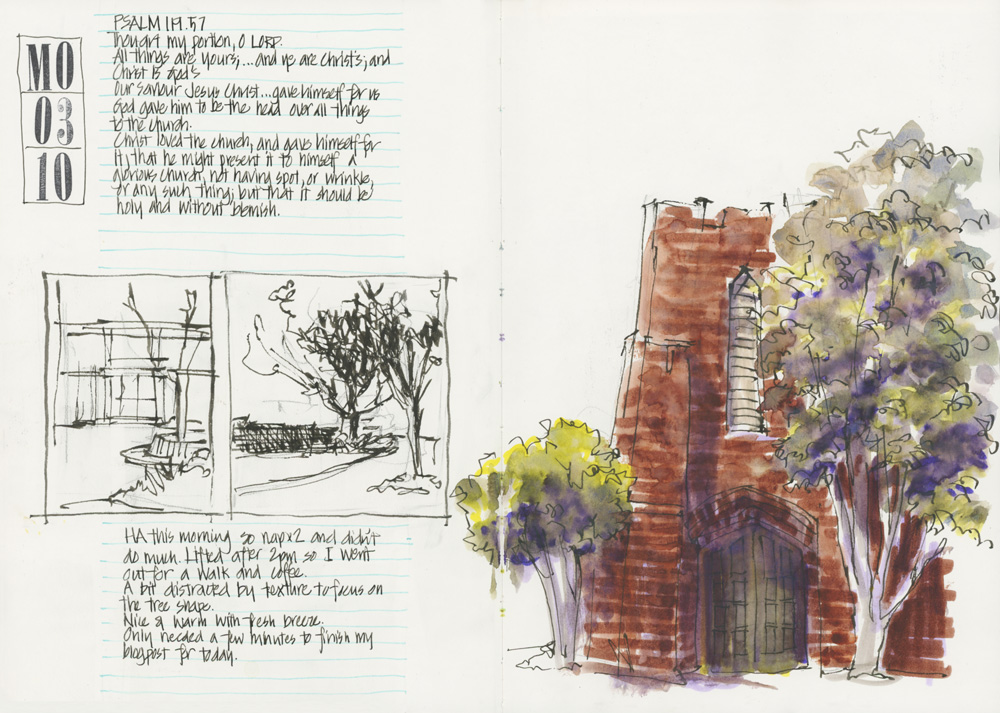 MO
03
10
PSALM 119.57
Thou art my portion, O LORD.
All things are yours; ... and ye are Christ's; and
Christ is God's
Our Saviour Jesus Christ... gave himself for us
God gave him to be the head over all things
to the church.
Christ loved the church, and gave himself for
it; that he might present it to himself a
glorious church, not having spot, or wrinkle,
or any such thing; but that it should be
holy and without blemish.
HA this morning so nap x2 and didn't
do much. Lifted after 2pm so I went
out for a walk and coffee.
A bit distracted by texture to focus on
the tree shape.
Nice & warm with fresh breeze.
Only needed a few minutes to finish my
blogpost for today.